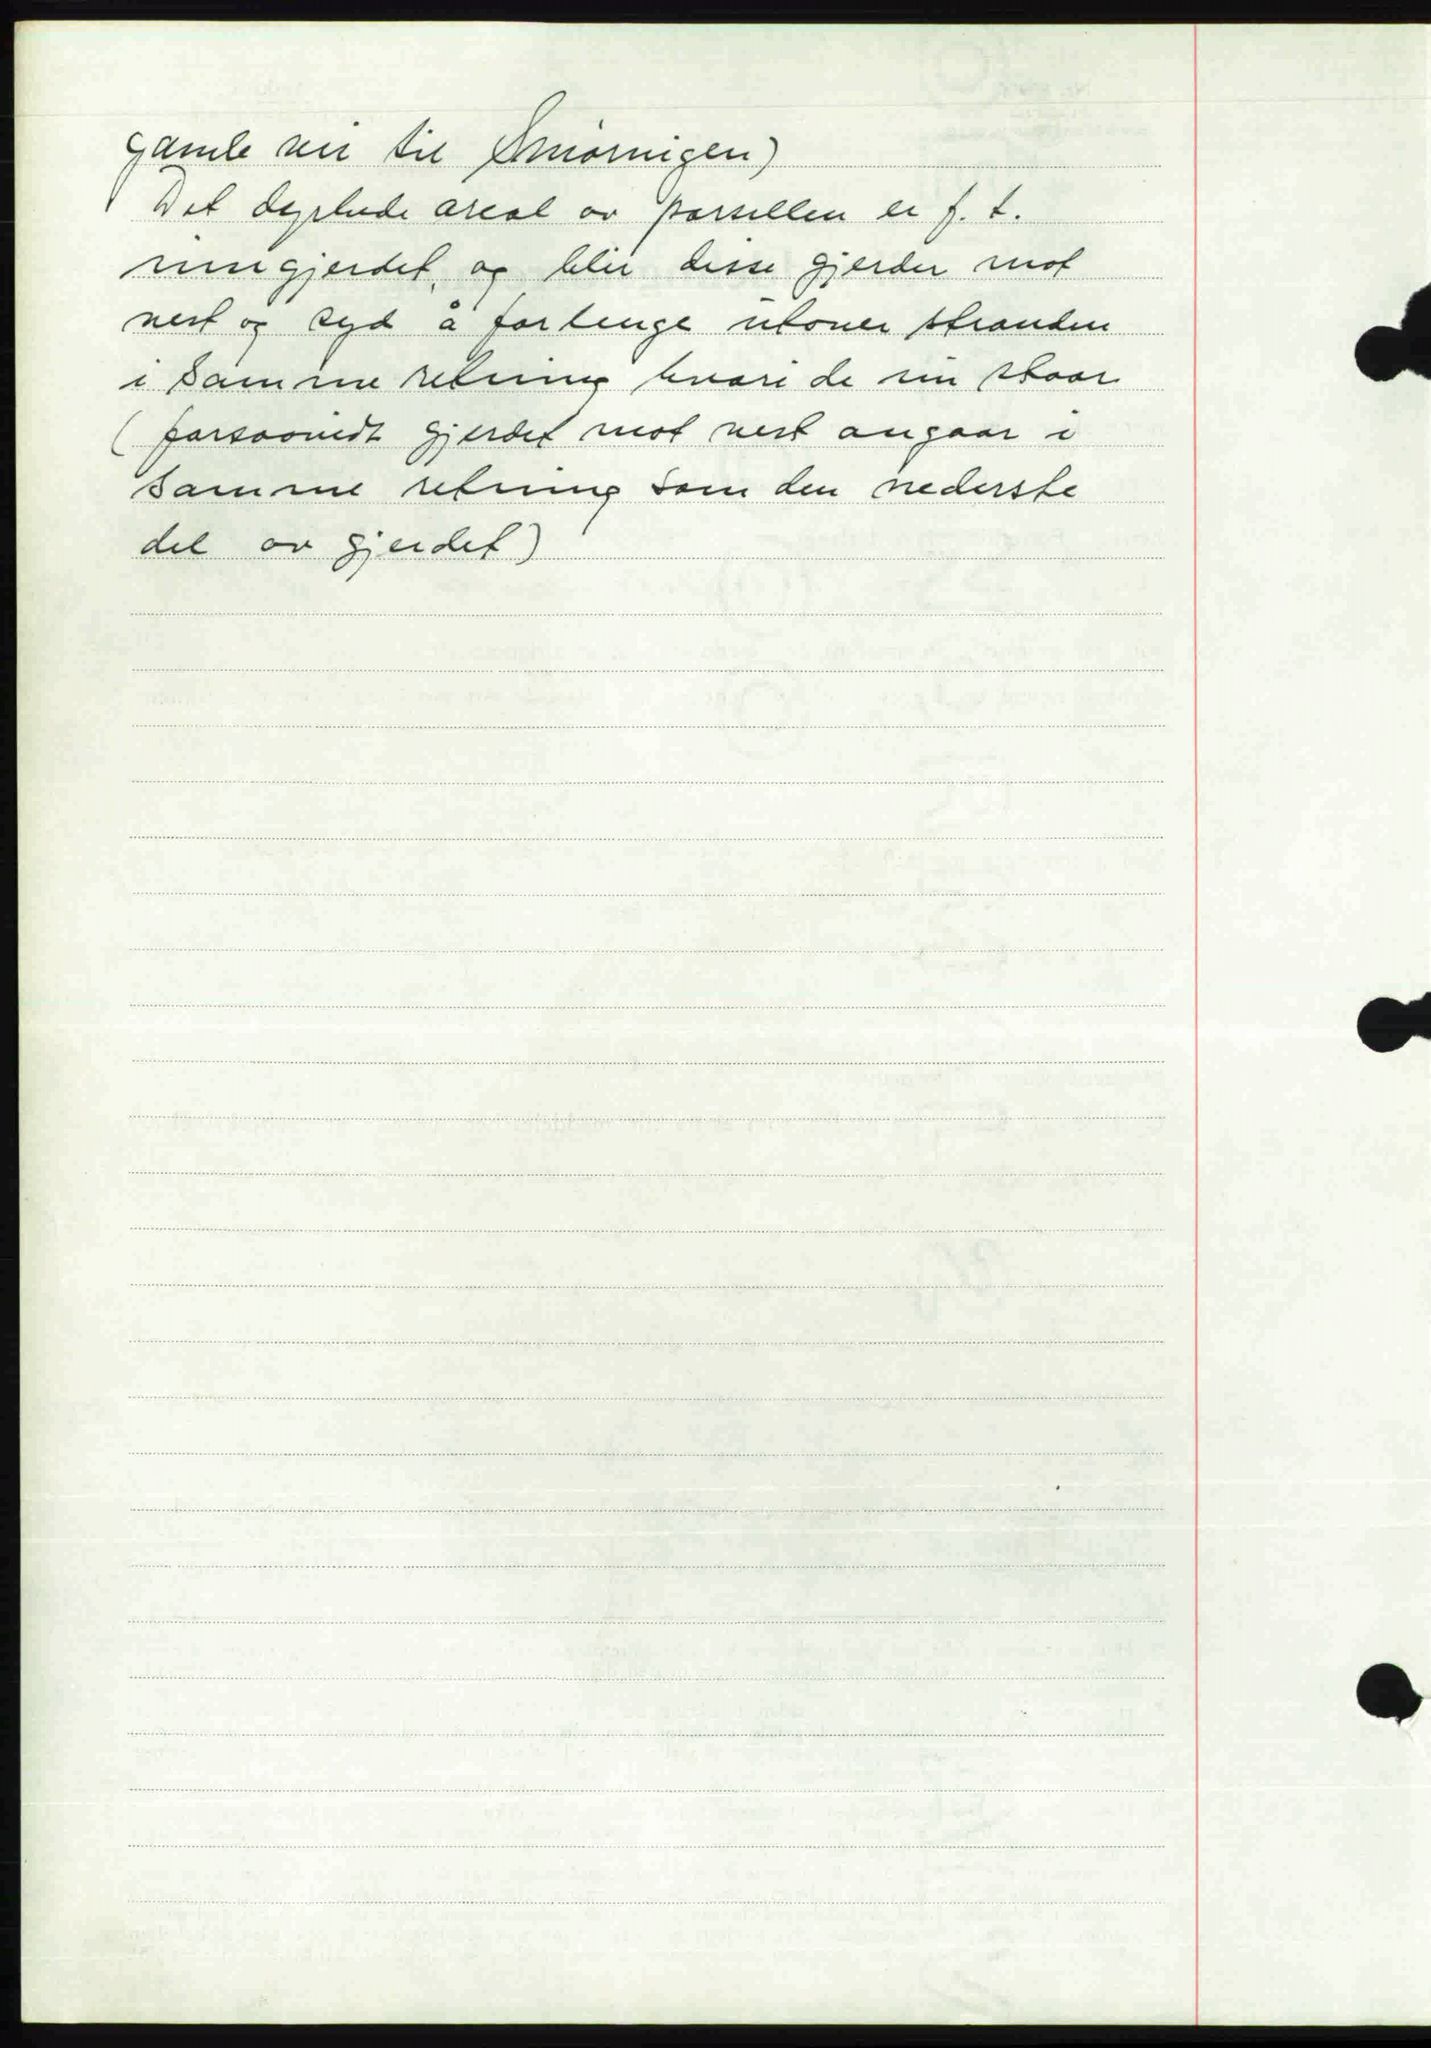 gamle vei til Smørvigen)
Det dyrkede areal av parsellen er f. t.
inngjerdet, og blir disse gjerder mot
vest og syd å forlenge utover stranden
i samme retning hvori de nu staar
(forsaavidt gjerdet mot vest angaar i
samme retning som den nederste
del av gjerdet)